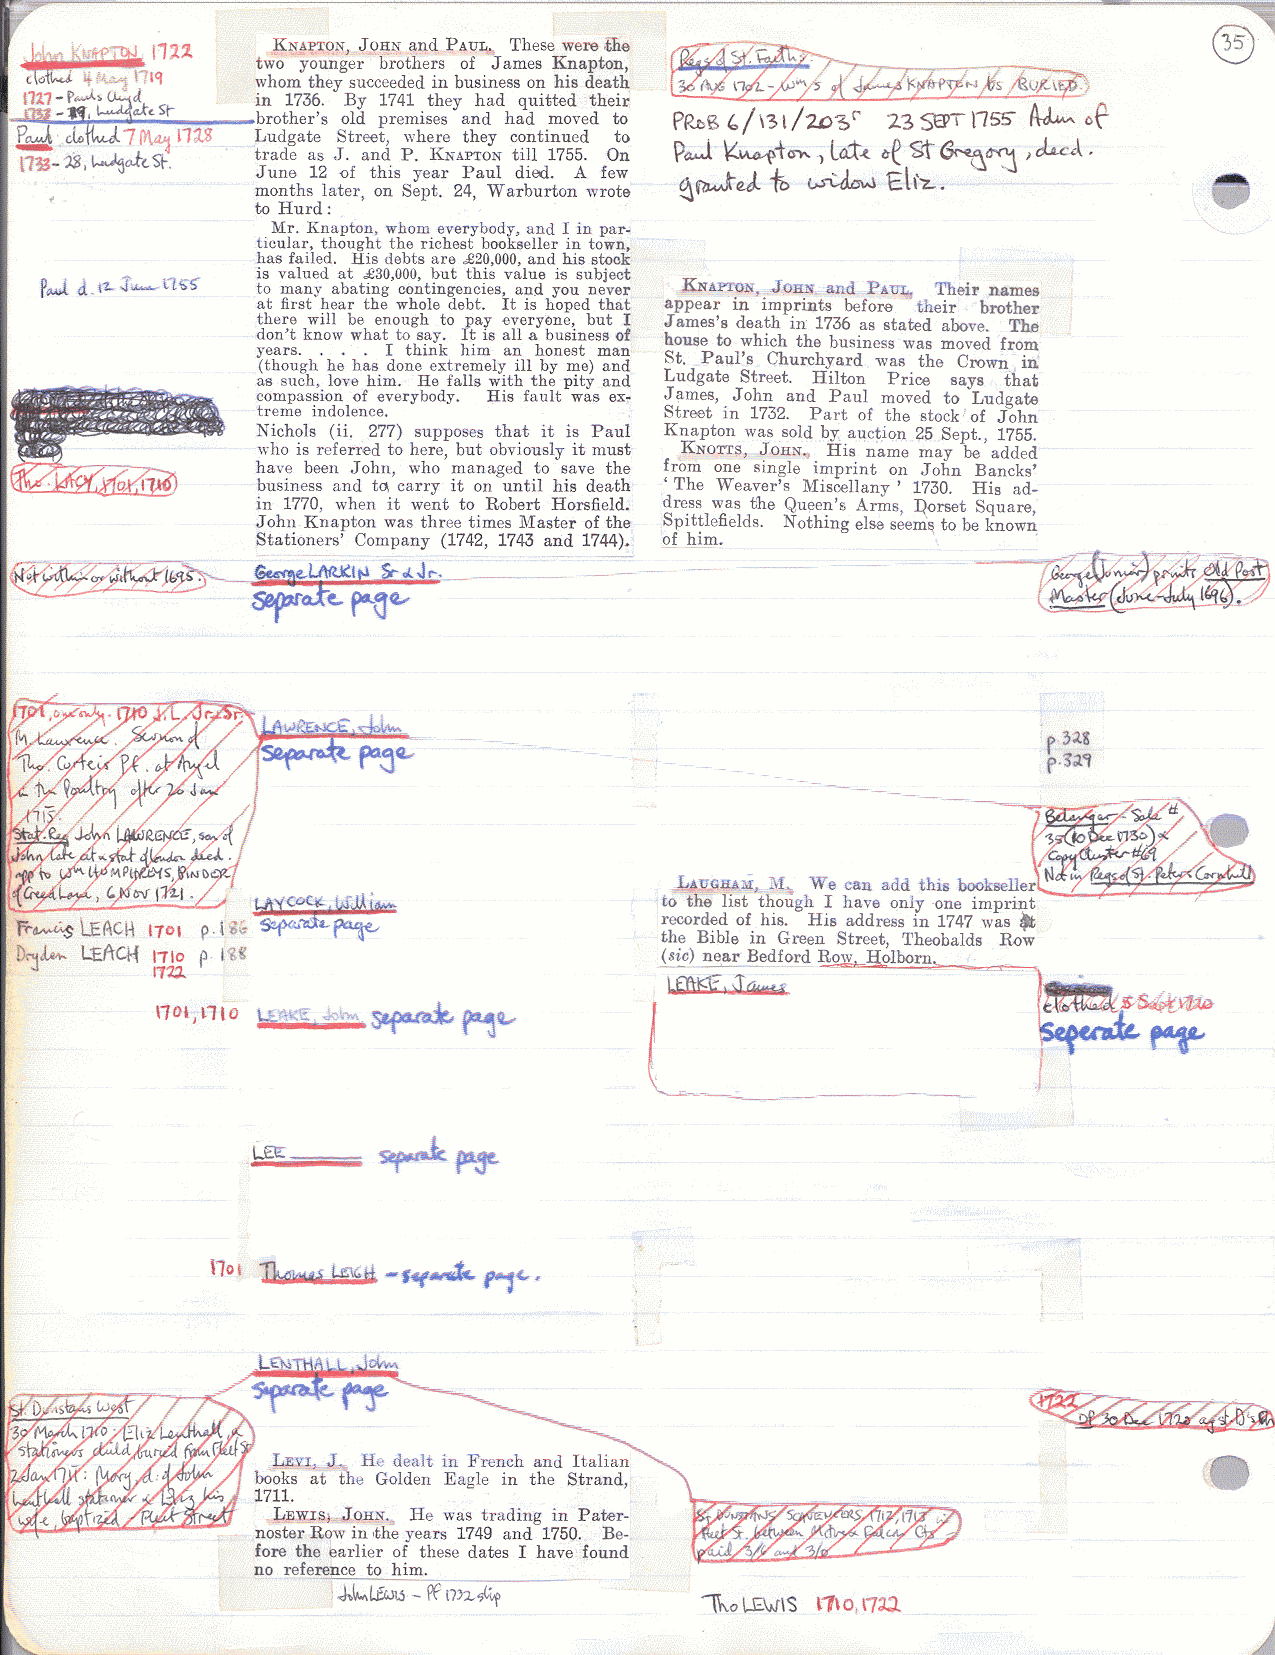 35
John KNAPTON, 1722
clothed 4 May 1719
1727 - Pauls Chyd
1733 - 39, Ludgate St
Paul clothed 7 May 1728
1733 - 28, Ludgate St.
Paul d. 12 June 1755
Tho. LACY, 1701, 1710
KNAPTON, JOHN and PAUL. These were the
two younger brothers of James Knapton,
whom they succeeded in business on his death
in 1736. By 1741 they had quitted their
brother's old premises and had moved to
Ludgate Street, where they continued to
trade as J. and P. KNAPTON till 1755. On
June 12 of this year Paul died. A few
months later, on Sept. 24, Warburton wrote
to Hurd:
Mr. Knapton, whom everybody, and I in par-
ticular, thought the richest bookseller in town,
has failed. His debts are £20,000, and his stock
is valued at £30,000, but this value is subject
to many abating contingencies, and you never
at first hear the whole debt. It is hoped that
there will be enough to pay everyone, but I
don't know what to say. It is all a business of
years. . . . I think him an honest man
(though he has done extremely ill by me) and
as such, love him. He falls with the pity and
compassion of everybody. His fault was ex-
treme indolence.
Nichols (ii. 277) supposes that it is Paul
who is referred to here, but obviously it must
have been John, who managed to save the
business and to carry it on until his death
in 1770, when it went to Robert Horsfield.
John Knapton was three times Master of the
Stationers' Company (1742, 1743 and 1744).
Regs of St. Faiths.
30 AUG 1702 - Wm s of James KNAPTON bs BURIED.
PROB 6/131/203r 23 SEPT 1755 Adm of
Paul Knapton, late of St Gregory, decd.
granted to widow Eliz.
KNAPTON, JOHN and PAUL. Their names
appear in imprints before their brother
James's death in 1736 as stated above. The
house to which the business was moved from
St. Paul's Churchyard was the Crown in
Ludgate Street. Hilton Price says that
James, John and Paul moved to Ludgate
Street in 1732. Part of the stock of John
Knapton was sold by auction 25 Sept., 1755.
KNOTTS, JOHN. His name may be added
from one single imprint on John Bancks'
'The Weaver's Miscellany' 1730. His ad-
dress was the Queen's Arms, Dorset Square,
Spittlefields. Nothing else seems to be known
of him.
Not within or without 1695.
George LARKIN Sr & Jr.
separate page
George (Junior) prints Old Post
Master (June-July 1696).
1701, one only. 1710 J.L. Jr. Sr.
M. Lawrence. Sermon of
Tho. Curteis Pf. at Angel
in the Poultry after 20 Jan
1715.
Stat. Reg John LAWRENCE, son of
John late cit & stat of London decd.
app to Wm HUMPHREYS, BINDER
of Creed Lane, 6 Nov 1721.
LAWRENCE, John
separate page
p.328
p.329
Belanger - Sale #
35 (10 Dec 1730) &
Copy Cluster #69
Not in Regs of St. Peters Cornhill
LAYCOCK, William
separate page
Francis LEACH 1701 p.186
Dryden LEACH 1710 p 188
1722
LAUGHAM, M. We can add this bookseller
to the list though I have only one imprint
recorded of his. His address in 1747 was at
the Bible in Green Street, Theobalds Row
(sic) near Bedford Row, Holborn.
LEAKE, James
clothed 5 Sept 1720
Seperate page
1701, 1710 LEAKE, John separate page
LEE separate page
1701 Thomas LEIGH - separate page.
LENTHALL, John
separate page
St. Dunstans West
30 March 1710: Eliz Lenthall, a
stationers child, buried from Fleet St
2 Jan 1711: Mary, d. of John
Lenthall stationer & Eliz his
wife, baptized - Fleet Street
1722
Df 30 Dec 1720 agst
LEVI, J. He dealt in French and Italian
books at the Golden Eagle in the Strand,
1711.
LEWIS, JOHN. He was trading in Pater-
noster Row in the years 1749 and 1750. Be-
fore the earlier of these dates I have found
no reference to him.
John LEWIS - Pf 1732 slip
St DUNSTANS SCAVENGERS 1712, 1713 in
Fleet St. between Mitre & Falcon Cts
paid 3/6 and 3/0
Tho LEWIS 1710, 1722